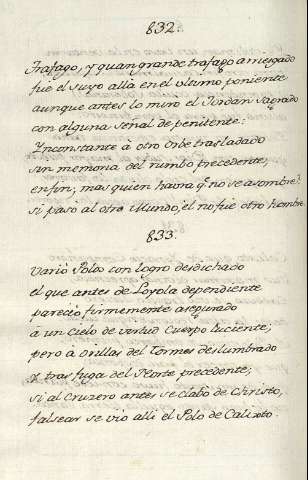 832.
Trafago, y quan grande trafago amengado
fue el suyo allà en el ultimo poniente
aunque antes lo miro el Jordan Sagrado
con alguna señal de penitente:
Ynconstante à otro Orbe trasladado
sin memoria del rumbo precedente,
en fin, mas quien havra q.e no se asombre?
si pasò al otro Mundo, el no fue otro hombre
833.
Variò Polos con logro desdichado
el que antes de Loyola dependiente
pareciò firmemente asegurado
à un Cielo de virtud Cuerpo luciente;
pero à orillas del Tormes deslumbrado
y trasfuga del Norte precedente,
si al Cruzero antes se clabò de Christo,
falsear se viò alli el Polo de Calixto.